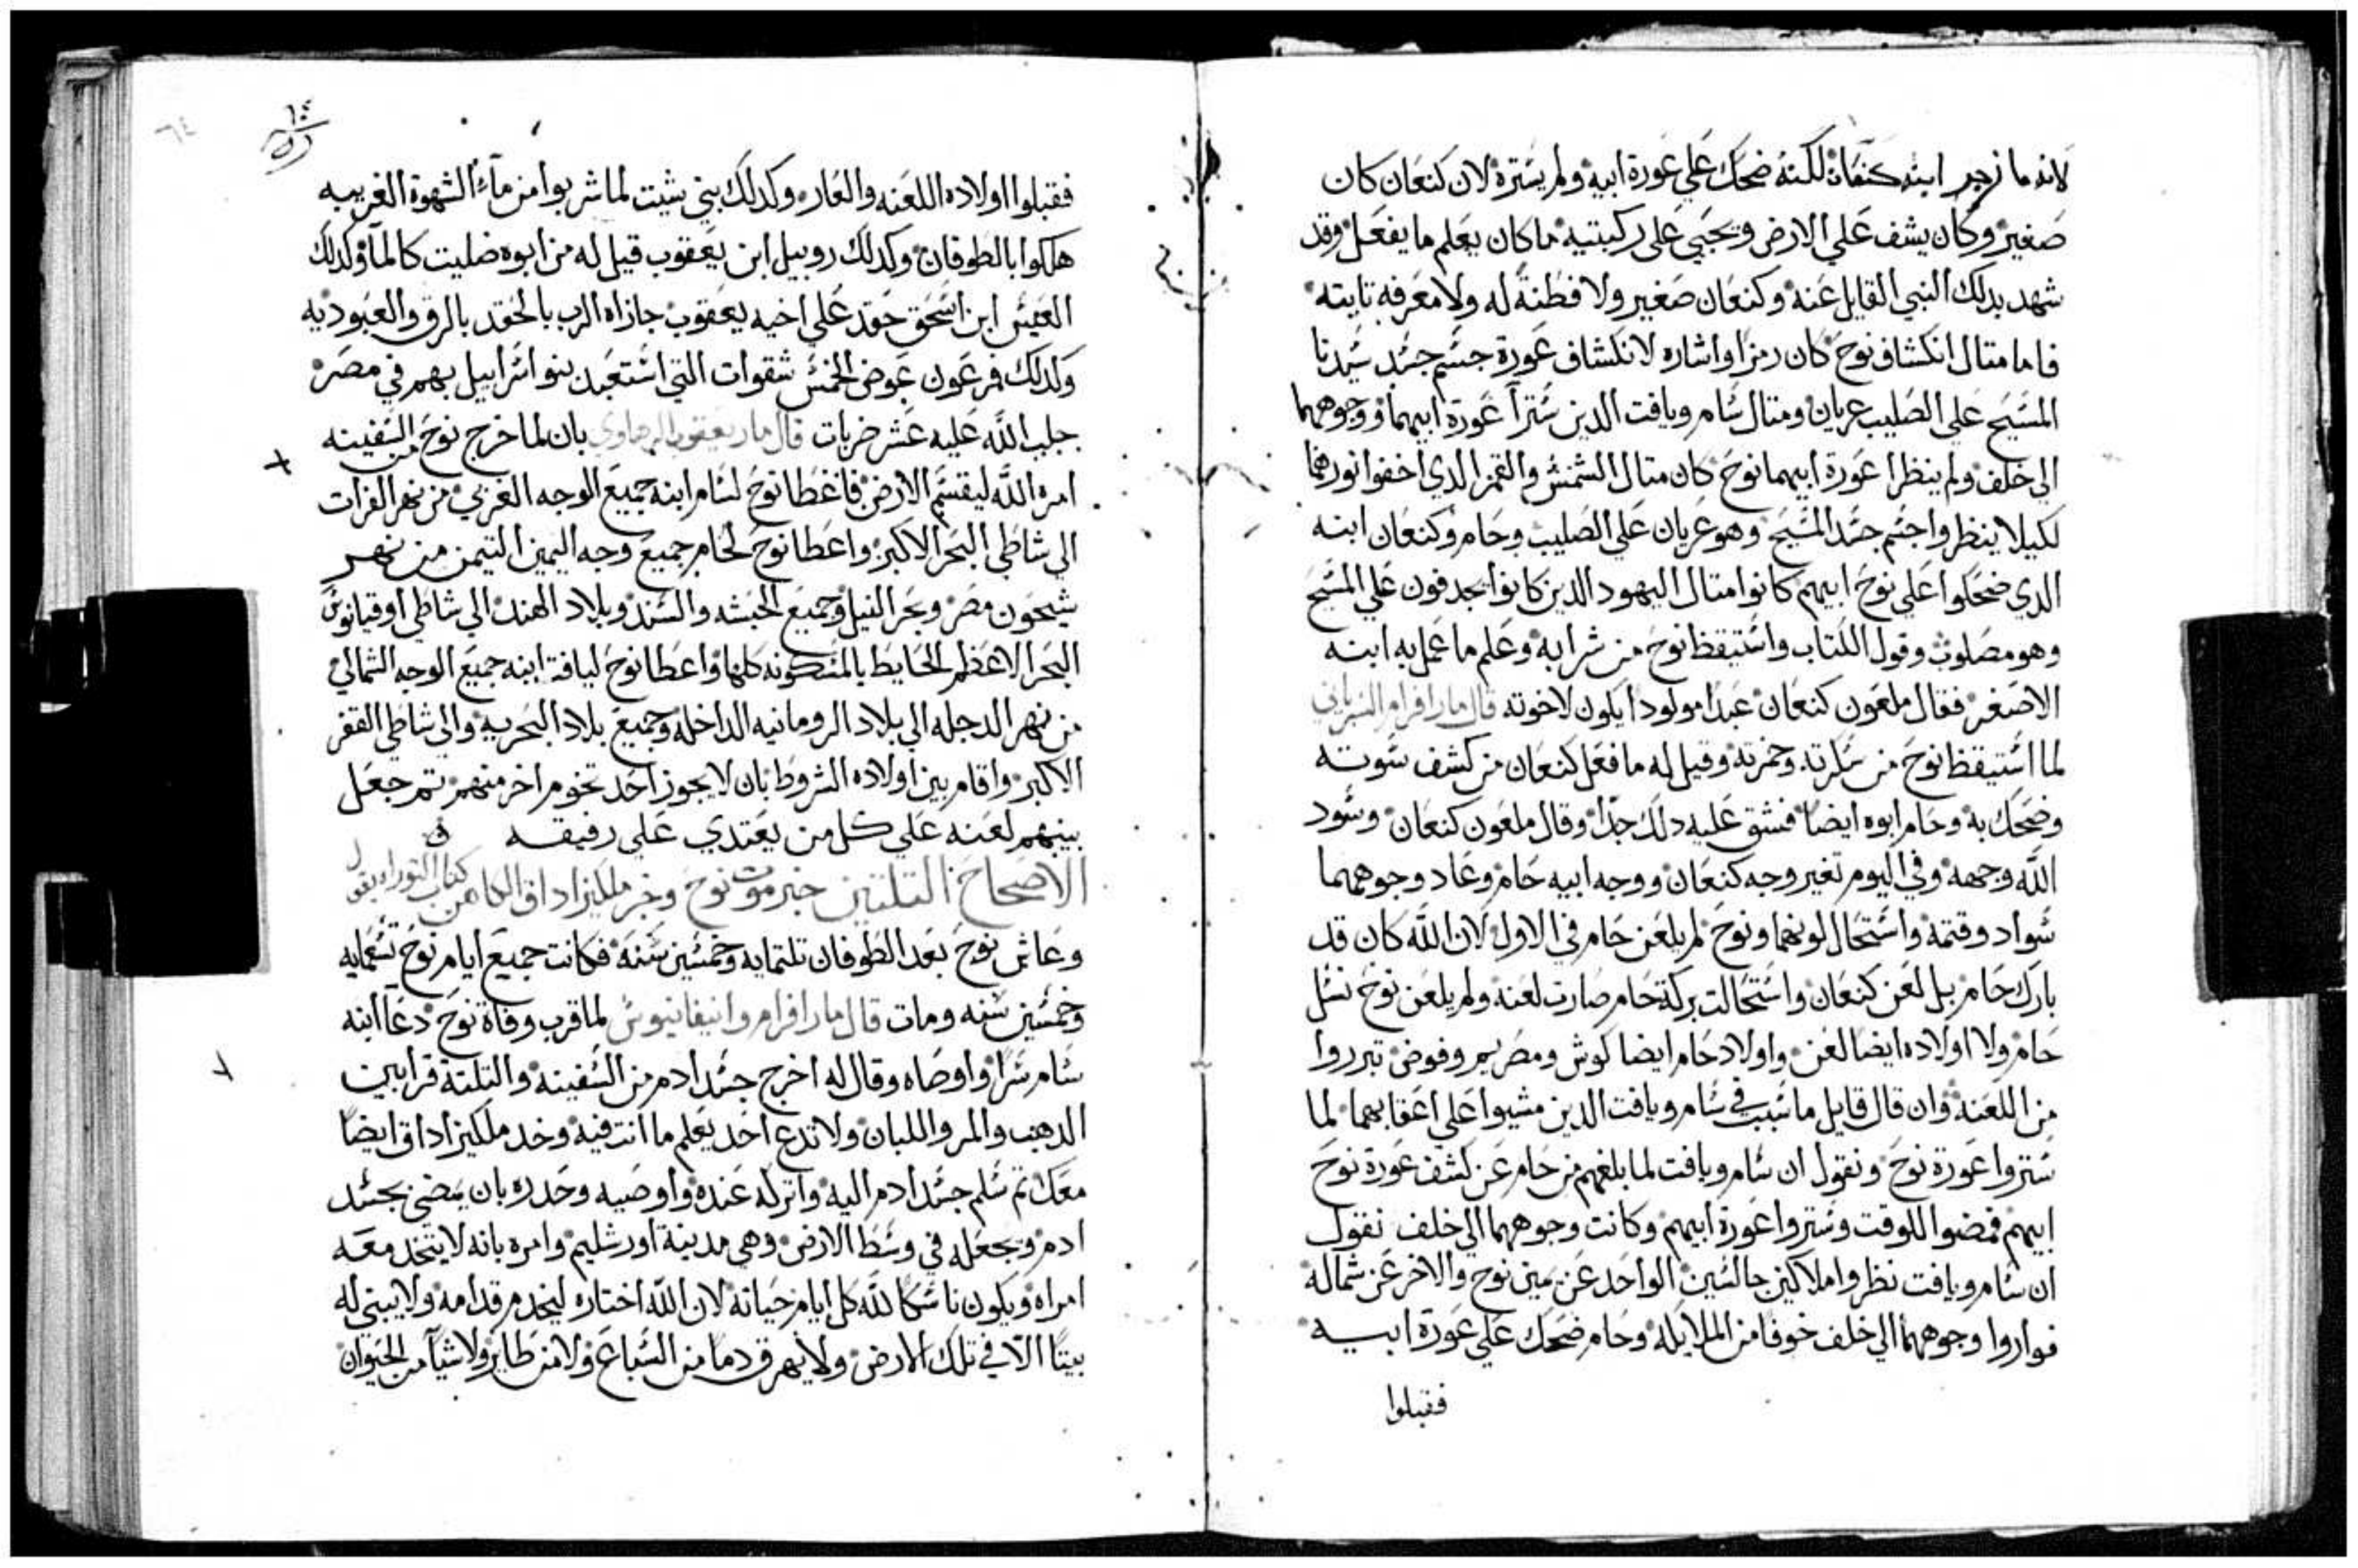 لانه ما زجر ابنه كنعان لكنه ضحك علي عورة ابيه ولم يسترة لان كنعان كان
صغير وكان يشف علي الارض ويحبي علي ركبتيه ما كان يعلم ما يفعل وقد
شهد بدلك النبي القايل عنه وكنعان صغير ولا فطنة له ولا معرفه تابته
فاما متال انكشاف نوح كان رمزا واشاره لانكشاف عورة جسم جسد سيدنا
المسيح علي الصليب عريان ومتال سام ويافت الدين سترا عورة ابيهما ووجوههما
الي خلف ولم ينظرا عورة ابيهما نوح كان متال الشمس والقمر الدي اخفوا نورهما
لكيلا ينظروا جسم جسد المسيح وهو عريان علي الصليب وحام وكنعان ابنه
الدي ضحكوا علي نوح ابيهم كانوا امتال اليهود الدين كانوا يجدفون علي المسيح
وهو مصلوب وقول الكتاب واستيقظ نوح من شرابه وعلم ما عمل به ابنه
الاصغر فقال ملعون كنعان عبدا مولودا يكون لاخوته قال مار افرام السرياني
لما استيقظ نوح من سكرته وخمرته وقيل له ما فعل كنعان من كشف سوته
وضحك به وحام ابوه ايضا فشق عليه دلك جدا وقال ملعون كنعان وسود
الله وجهه وفي اليوم تغير وجه كنعان ووجه ابيه حام وعاد وجوههما
سواد وقتمة واستحال لونهما ونوح لم يلعن حام في الاول لان الله كان قد
بارك حام بل لعن كنعان واستحالت بركة حام صارت لعنه ولم يلعن نوح نسل
حام ولا اولاده ايضا لعن واولاد حام ايضا كوش ومصريم وفوض تبرروا
من اللعنة وان قال قايل ما سبب في سام ويافت الدين مشيوا علي اعقابهما لما
ستروا عورة نوح ونقول ان سام ويافت لما بلغهم من حام عن كشف عورة نوح
ابيهم فمضوا للوقت وستروا عورة ابيهم وكانت وجوههما الي خلف نقول
ان سام ويافت نظروا ملاكين جالسين الواحد عن يمين نوح والاخر عن شماله
فواروا وجوههما الي خلف خوفا من الملايكه وحام ضحك علي عورة ابيه
فقبلوا
فقبلوا اولاده اللعنه والعار وكدلك بني شيت لما شربوا من مآء الشهوة الغريبه
هلكوا بالطوفان وكدلك روبيل ابن يعقوب قيل له من ابوه ضليت كالمآ وكدلك
العيس ابن اسحق حقد علي اخيه يعقوب جازاه الرب بالحقد بالرق والعبوديه
وكدلك فرعون عوض الخمس شقوات التي استعبد بنو اسراييل بهم في مصر
جلب الله عليه عشر ضربات قال مار يعقوب الرهاوي بان لما خرج نوح من السفينه
امره الله ليقسم الارض فاعطا نوح لسام ابنه جميع الوجه الغربي من نهر الفرات
الي شاطي البحر الاكبر واعطا نوح لحام جميع وجه اليمين التيمن من نهر
شيحون مصر وبحر النيل وجميع الحبشه والسند وبلاد الهند الي شاطي اوقيانوس
البحر الاعظم الحايط بالمسكونه كلها واعطا نوح ليافة ابنه جميع الوجه الشمالي
من نهر الدجله الي بلاد الرومانيه الداخله وجميع بلاد البحريه والي شاطي القفر
الاكبر واقام بين اولاده الشروط بان لا يجوز احد تخوم اخر منهم تم جعل
بينهم لعنه علي كل من يعتدي علي رفيقه
الاصحاح التلتين خبر موت نوح وخبر ملكيزاداق الكاهن من كتاب التوراه يقول
وعاش نوح بعد الطوفان تلتمايه وخمسين سنة فكانت جميع ايام نوح تسعمايه
وخمسين سنه ومات قال مار افرام وابيفانيوس لما قرب وفاة نوح دعا ابنه
سام سرا واوصاه وقال له اخرج جسد ادم من السفينه والتلتة قرابين
الدهب والمر واللبان ولا تدع احد يعلم ما انت فيه وخد ملكيزاداق ايضا
معك تم سلم جسد ادم اليه واتركه عنده واوصيه وحدره بان يمضي بجسد
ادم ويجعله في وسط الارض وهي مدينة اورشليم وامره بانه لا يتخد معه
امراه ويكون ناسكا لله كل ايام حياته لان الله اختاره ليخدم قدامه ولا يبتي له
بيتا الا في تلك الارض ولا يهرق دما من السباع ولا من طاير ولا شيآ من الحيوان